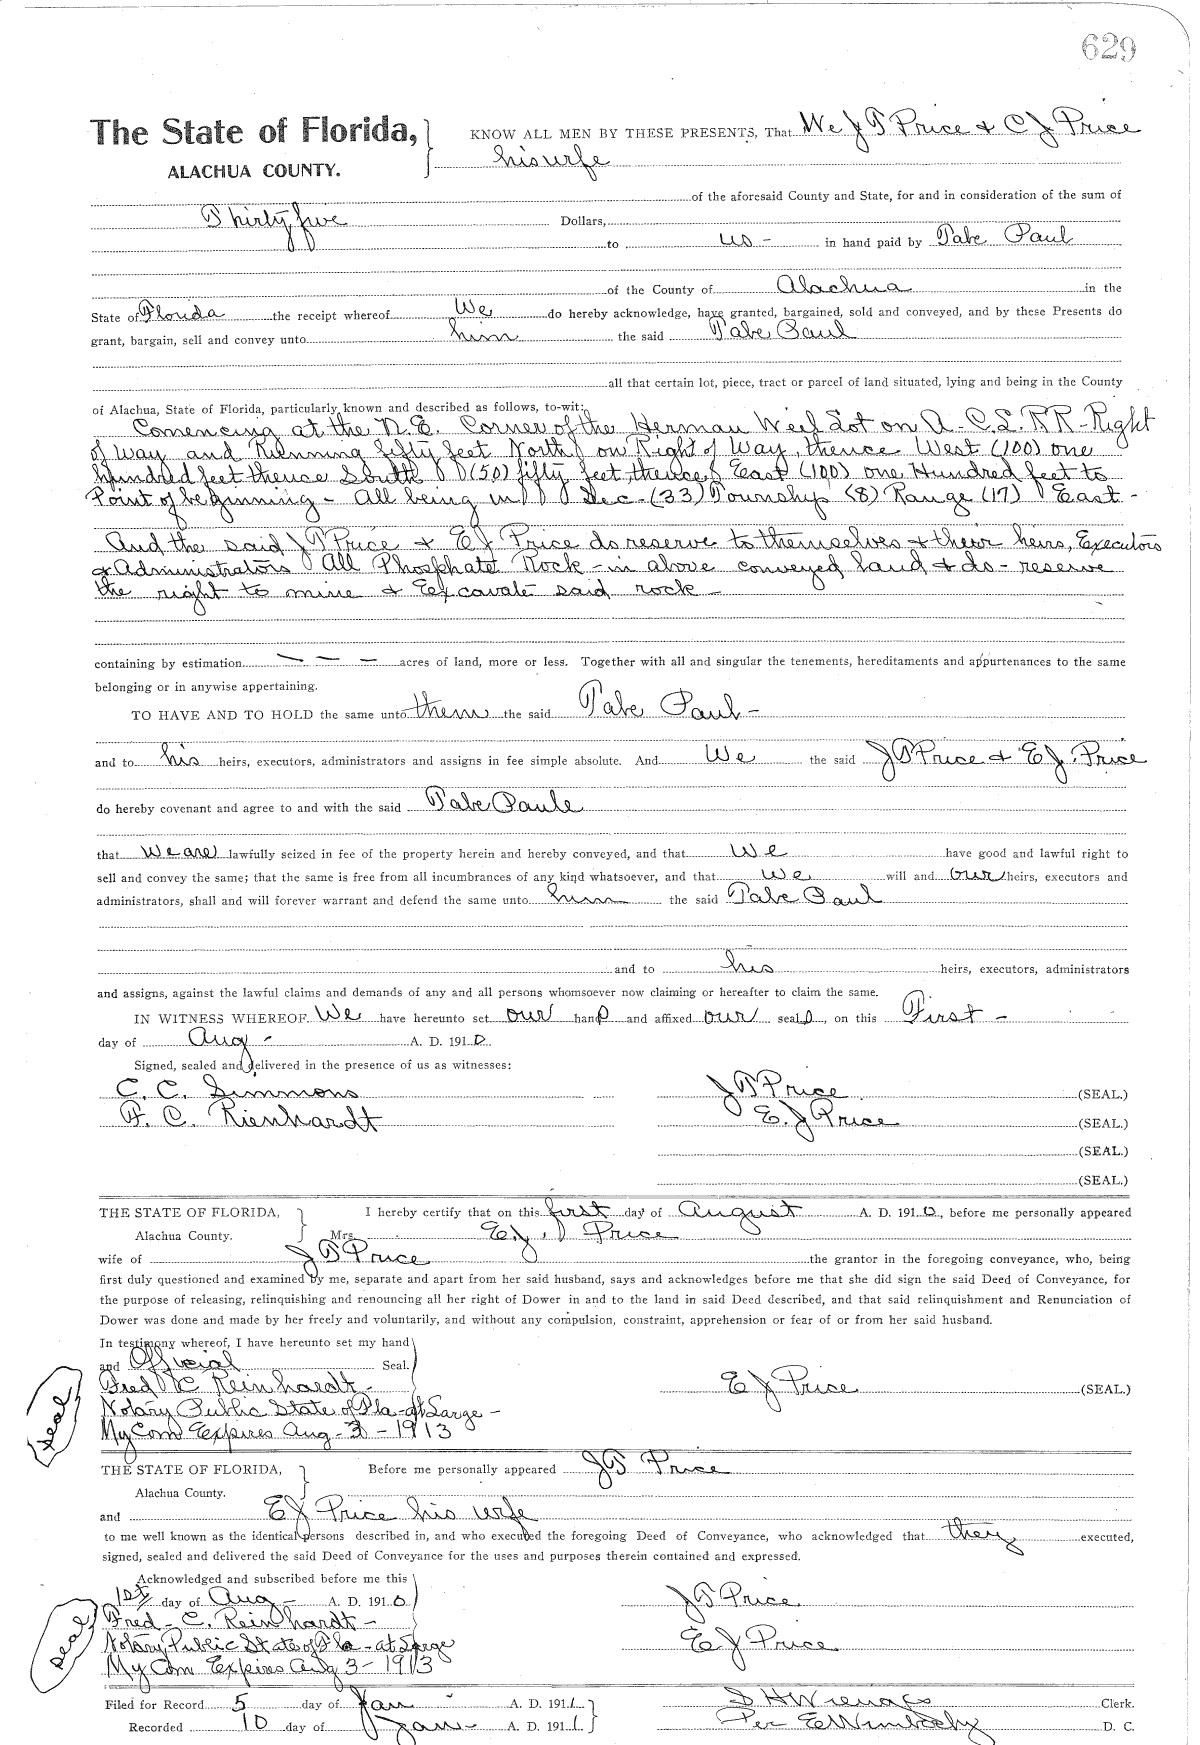 629
The State of Florida,
ALACHUA COUNTY.
KNOW ALL MEN BY THESE PRESENTS, That We J T Price & C J Price
his wife
of the aforesaid County and State, for and in consideration of the sum of
Thirty five Dollars,
to us - in hand paid by Tabe Paul
of the County of Alachua in the
State of Florida the receipt whereof We do hereby acknowledge, have granted, bargained, sold and conveyed, and by these Presents do
grant, bargain, sell and convey unto him the said Tabe Paul
all that certain lot, piece, tract or parcel of land situated, lying and being in the County
of Alachua, State of Florida, particularly known and described as follows, to-wit:
Comencing at the N.E. Corner of the Herman Weil Lot on A-C.L. RR-Right
of Way and Running fifty feet North on Right of Way, thence West (100) one
hundred feet thence South (50) fifty feet, thence East (100) one Hundred feet to
Point of beginning - All being in Sec-(33) Township (8) Range (17) East -
And the said J T Price & E J Price do reserve to themselves & their heirs, Executors
& Administrators All Phosphate Rock - in above conveyed land & do - reserve
the right to mine & Excavate said rock -
containing by estimation — — — acres of land, more or less. Together with all and singular the tenements, hereditaments and appurtenances to the same
belonging or in anywise appertaining.
TO HAVE AND TO HOLD the same unto them the said Tabe Paul -
and to his heirs, executors, administrators and assigns in fee simple absolute. And We the said J T Price & E J. Price
do hereby covenant and agree to and with the said Tabe Paule
that We are lawfully seized in fee of the property herein and hereby conveyed, and that We have good and lawful right to
sell and convey the same; that the same is free from all incumbrances of any kind whatsoever, and that we will and our heirs, executors and
administrators, shall and will forever warrant and defend the same unto him the said Tabe Paul
and to his heirs, executors, administrators
and assigns, against the lawful claims and demands of any and all persons whomsoever now claiming or hereafter to claim the same.
IN WITNESS WHEREOF We have hereunto set our hands and affixed our seals, on this First -
day of Aug - A. D. 1910.
Signed, sealed and delivered in the presence of us as witnesses:
C. C. Simmons J T Price (SEAL.)
F. C. Rienhardt E. J Price (SEAL.)
(SEAL.)
(SEAL.)
THE STATE OF FLORIDA, I hereby certify that on this first day of August A. D. 1910, before me personally appeared
Alachua County. Mrs. E. J. Price
wife of J T Price the grantor in the foregoing conveyance, who, being
first duly questioned and examined by me, separate and apart from her said husband, says and acknowledges before me that she did sign the said Deed of Conveyance, for
the purpose of releasing, relinquishing and renouncing all her right of Dower in and to the land in said Deed described, and that said relinquishment and Renunciation of
Dower was done and made by her freely and voluntarily, and without any compulsion, constraint, apprehension or fear of or from her said husband.
In testimony whereof, I have hereunto set my hand
and Official Seal.
Fred C Reinhardt - E J Price (SEAL.)
Seal
Notary Public State of Fla - at Large -
My Com Expires Aug - 3 - 1913
THE STATE OF FLORIDA, Before me personally appeared J T Price
Alachua County.
and E J Price his wife
to me well known as the identical persons described in, and who executed the foregoing Deed of Conveyance, who acknowledged that they executed,
signed, sealed and delivered the said Deed of Conveyance for the uses and purposes therein contained and expressed.
Acknowledged and subscribed before me this
1st day of Aug - A. D. 1910 J T Price
Fred - C. Reinhardt -
Seal
Notary Public State of Fla - at Large E J Price
My Com Expires Aug 3 - 1913
Filed for Record 5 day of Jan A. D. 1911 S H Wienges Clerk.
Recorded 10 day of Jan - A. D. 1911 Per E Wimberly D. C.